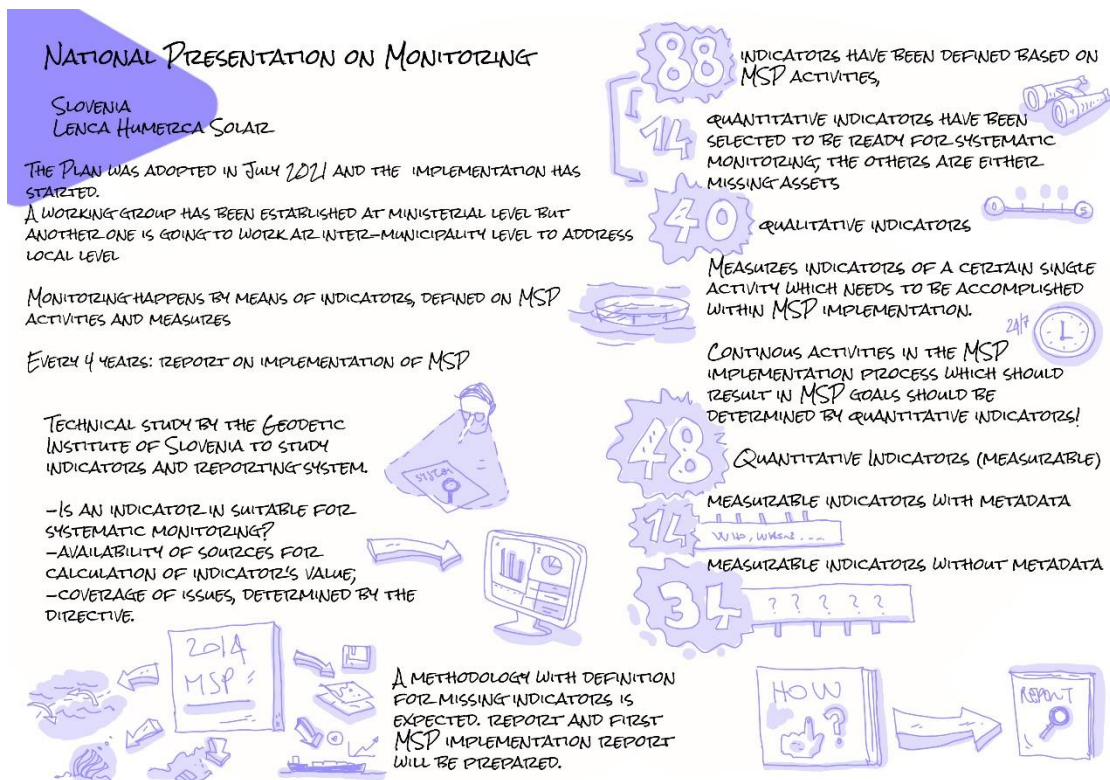 National Presentation on Monitoring
Slovenia
Lenca Humerca Solar
The Plan was adopted in July 2021 and the implementation has
started.
A working group has been established at ministerial level but
another one is going to work ar inter-municipality level to address
local level
Monitoring happens by means of indicators, defined on MSP
activities and measures
Every 4 years: report on implementation of MSP
Technical study by the Geodetic
Institute of Slovenia to study
indicators and reporting system.
-Is an indicator in suitable for
systematic monitoring?
-availability of sources for
calculation of indicator's value,
-coverage of issues, determined by the
directive.
system
2014
MSP
A methodology with definition
for missing indicators is
expected. report and first
MSP implementation report
will be prepared.
88
indicators have been defined based on
MSP activities,
14
quantitative indicators have been
selected to be ready for systematic
monitoring, the others are either
missing assets
40
qualitative indicators
0 5
Measures indicators of a certain single
activity which needs to be accomplished
within MSP implementation.
24/7
Continous activities in the MSP
implementation process which should
result in MSP goals should be
determined by quantitative indicators!
48
Quantitative Indicators (measurable)
measurable indicators with metadata
14
Who, when, ...
measurable indicators without metadata
34
? ? ? ? ?
HOW
?
REPORT